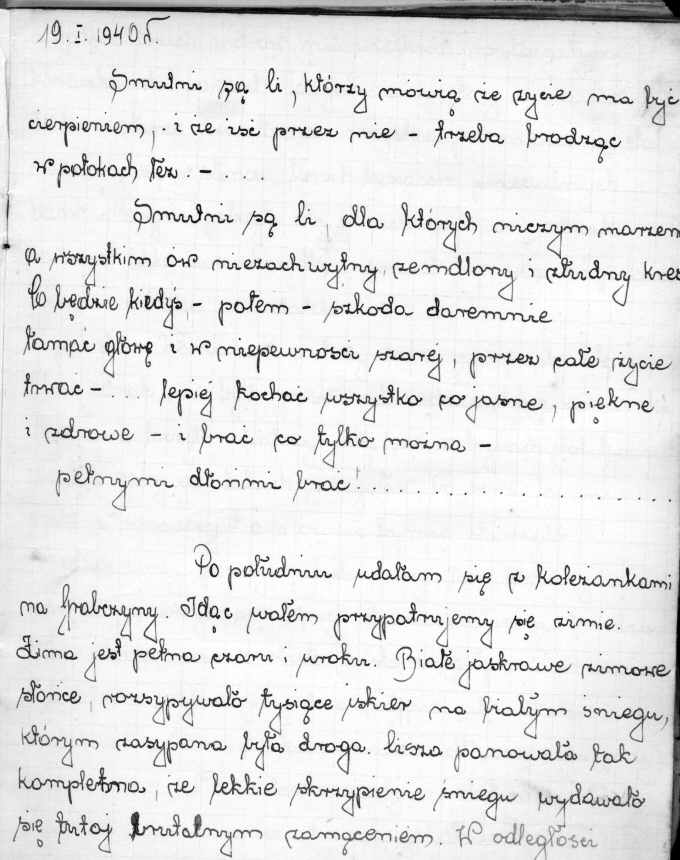 19. I. 1940 r.
Smutni są ci, którzy mówią że życie ma być
cierpieniem, . i że iść przez nie – trzeba brodząc
w potokach łez. –
Smutni są ci, dla których niczym marzen
a wszystkim ów niezachwytny, zemdlony i złudny kres
Co będzie kiedyś, – potem – szkoda daremnie
łamać głowę i w niepewności szarej, przez całe życie
trwać – ... lepiej kochać wszystko co jasne, piękne
i zdrowe – i brać co tylko można –
pełnymi dłońmi brać! . . . . . . . . . . . . . . . .
Po południu udałam się z koleżankami
na Grabczyny. Idąc wałem przypatrujemy się zimie.
Zima jest pełna czaru i uroku. Białe jaskrawe zimowe
słońce, rozsypywało tysiące iskier na białym śniegu,
którym zasypana była droga. Cisza panowała tak
kompletna, że lekkie skrzypienie śniegu wydawało
się tutaj brutalnym zamąceniem. W odległości